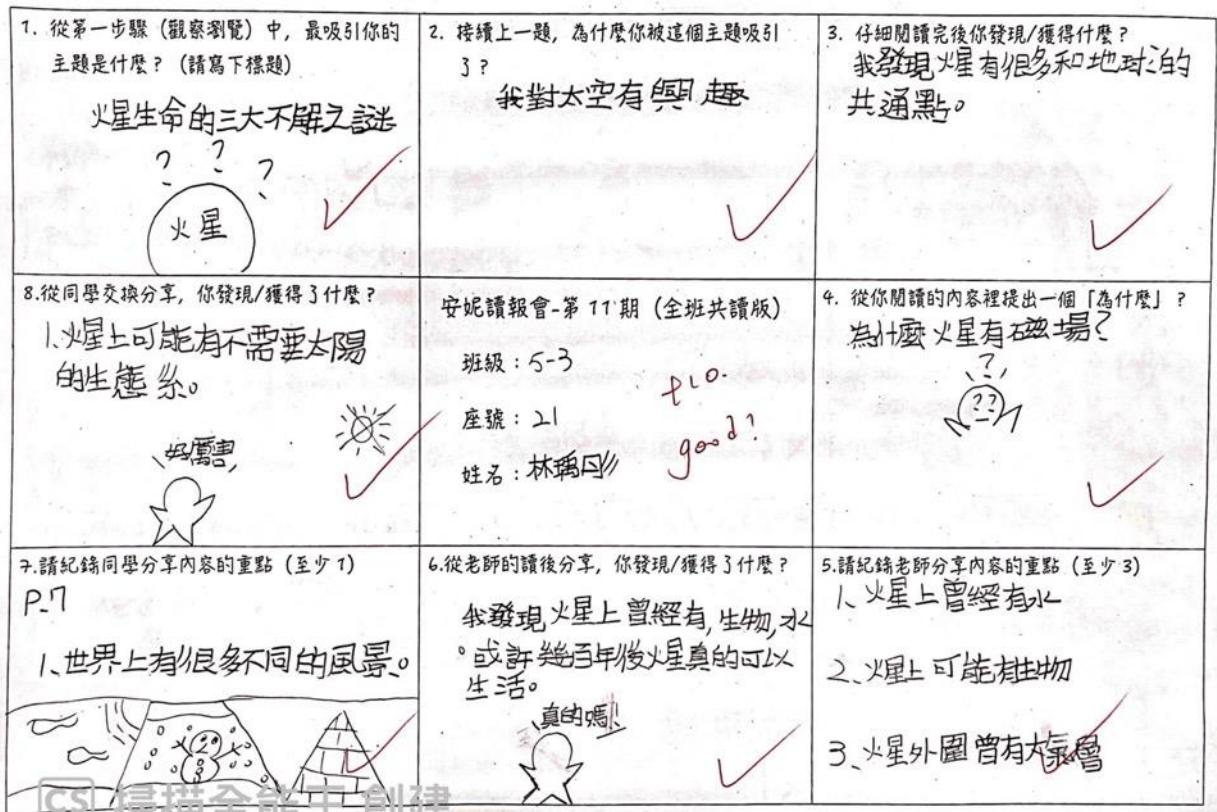 1. 從第一步驟（觀察瀏覽）中，最吸引你的
主題是什麼？（請寫下標題）
火星生命的三大不解之謎
? ? ?
火星
2. 接續上一題，為什麼你被這個主題吸引
了？
我對太空有興趣
3. 仔細閱讀完後你發現/獲得什麼？
我發現火星有很多和地球的
共通點。
8.從同學交換分享，你發現/獲得了什麼？
1.火星上可能有不需要太陽
的生態系。
好厲害
安妮讀報會-第 11 期（全班共讀版）
班級：5-3
座號：21
姓名：林
good!
4. 從你閱讀的內容裡提出一個「為什麼」？
為什麼火星有磁場？
?
??
7.請紀錄同學分享內容的重點（至少 1）
P.7
1、世界上有很多不同的風景。
6.從老師的讀後分享，你發現/獲得了什麼？
我發現火星上曾經有,生物,水
。或許幾百年後火星真的可以
生活。
真的嗎!!
5.請紀錄老師分享內容的重點（至少 3）
1、火星上曾經有水
2、火星上可能有生物
3、火星外圍曾有大氣層
CS 掃描全能王 創建